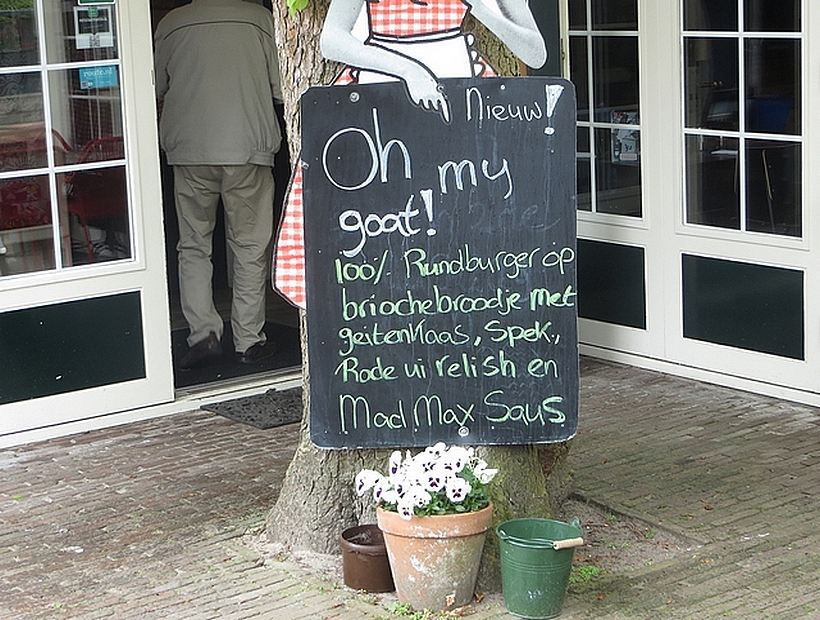 Nieuw!
Oh my
goat!
100% Rundburger op
briochebroodje met
geitenkaas, Spek,
Rode ui relish en
Mad Max Saus